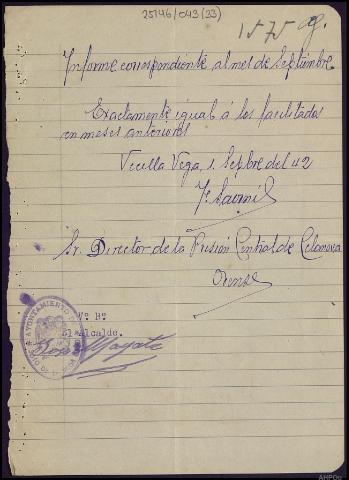 25146/043(33)
1575
Informe correspondiente al mes de Septiembre
Exactamente igual á los facilitados
en meses anteriores
Vecilla Vega, 1 Sepbre del 42
Sr. Director de la Prisión Central de Celanova
Orense
Vº. Bº
El Alcalde.
AYUNTAMIENTO
AHPOu